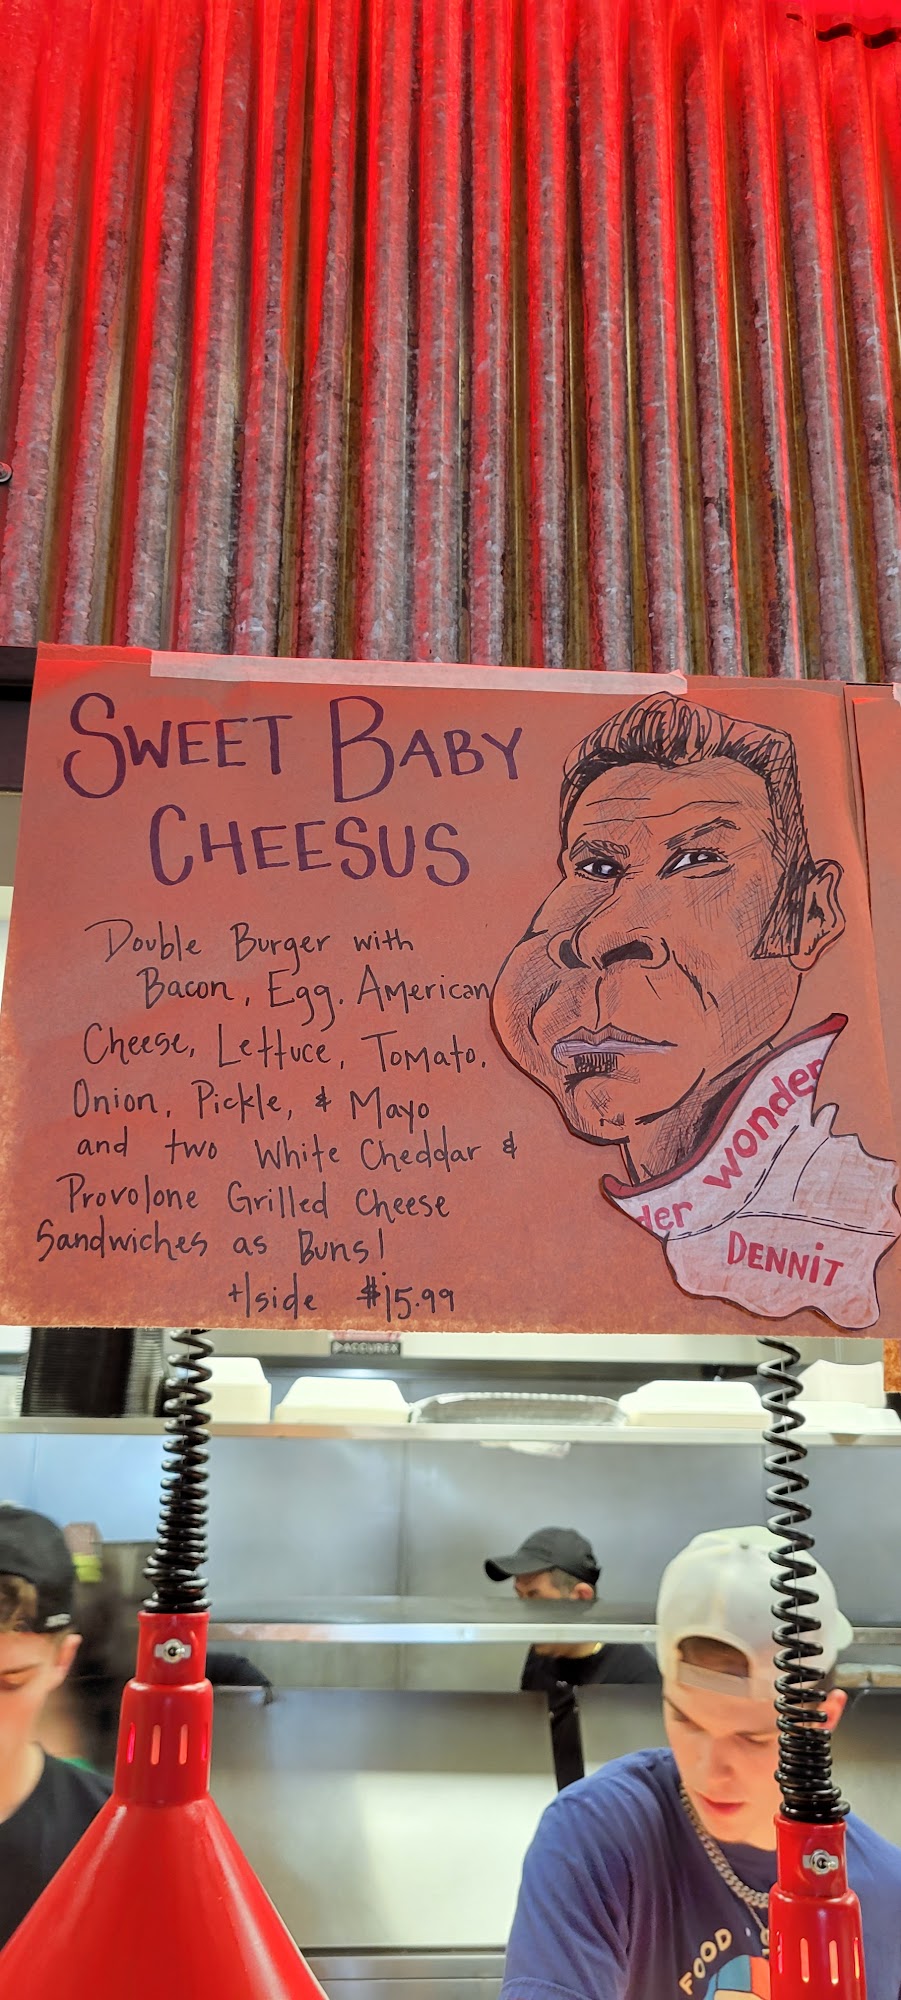 SWEET BABY
CHEESUS
Double Burger with
Bacon, Egg. American
Cheese, Lettuce, Tomato,
Onion, Pickle, & Mayo
and two White Cheddar &
Provolone Grilled Cheese
Sandwiches as Buns!
+/side $15.99
der wonder
DENNiT
FOOD